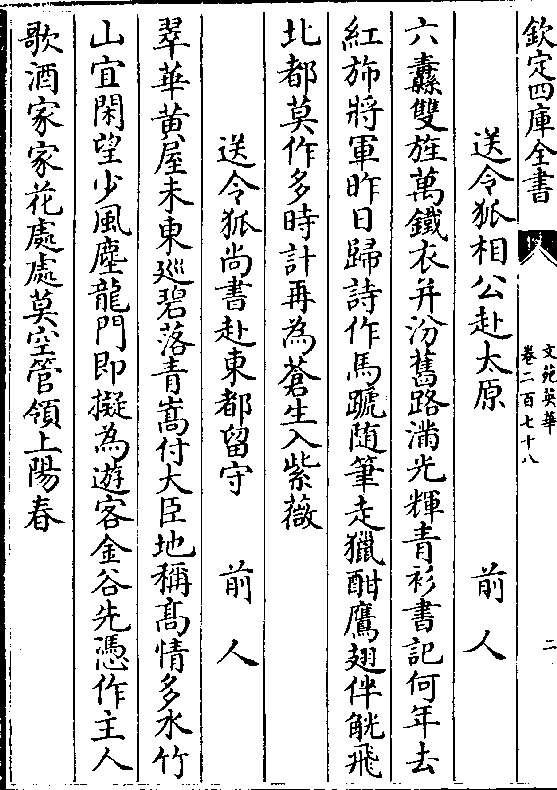 欽定四庫全書
文苑英華
卷二百七十八
二
送令狐相公赴太原 前人
六纛雙旌萬鐵衣并汾舊路滿光輝青衫書記何年去
紅旆將軍昨日歸詩作馬蹏随筆走獵酣鷹翅伴觥飛
北都莫作多時計再為蒼生入紫薇
送令狐尚書赴東都留守 前人
翠華黄屋未東廵碧落青嵩付大臣地稱髙情多水竹
山宜閑望少風塵龍門即擬為遊客金谷先憑作主人
歌酒家家花處處莫空管領上陽春